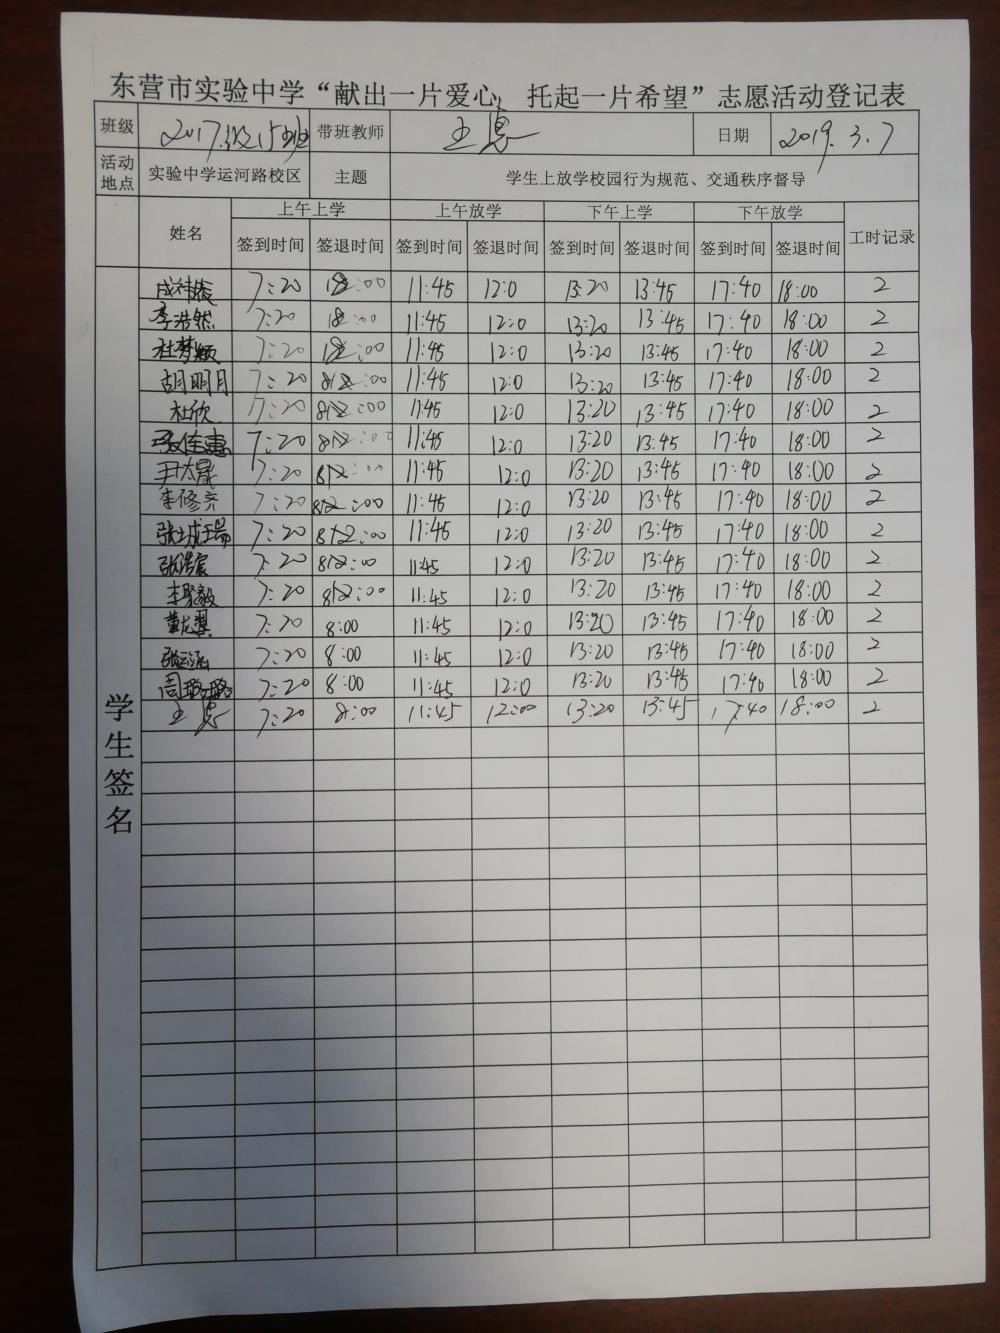 东营市实验中学“献出一片爱心、托起一片希望”志愿活动登记表
班级 2017级15班 带班教师 王惠 日期 2019.3.7
活动地点 实验中学运河路校区 主题 学生上放学校园行为规范、交通秩序督导
姓名 上午上学 上午放学 下午上学 下午放学 工时记录
签到时间 签退时间 签到时间 签退时间 签到时间 签退时间 签到时间 签退时间
学生签名
7:20 11:45 12:0 13:20 13:45 17:40 18:00 2
李浩然 7:20 11:45 12:0 13:20 13:45 17:40 18:00 2
杜梦颖 7:20 11:45 12:0 13:20 13:45 17:40 18:00 2
胡明月 7:20 11:45 12:0 13:20 13:45 17:40 18:00 2
杜欣 7:20 11:45 12:0 13:20 13:45 17:40 18:00 2
张佳惠 7:20 11:45 12:0 13:20 13:45 17:40 18:00 2
尹太晟 7:20 11:45 12:0 13:20 13:45 17:40 18:00 2
李修齐 7:20 11:45 12:0 13:20 13:45 17:40 18:00 2
7:20 11:45 12:0 13:20 13:45 17:40 18:00 2
张浩宸 7:20 11:45 12:0 13:20 13:45 17:40 18:00 2
李聚毅 7:20 11:45 12:0 13:20 13:45 17:40 18:00 2
7:20 8:00 11:45 12:0 13:20 13:45 17:40 18:00 2
张云涵 7:20 8:00 11:45 12:0 13:20 13:45 17:40 18:00 2
周璐璐 7:20 8:00 11:45 12:0 13:20 13:45 17:40 18:00 2
王惠 7:20 8:00 11:45 12:00 13:20 13:45 17:40 18:00 2